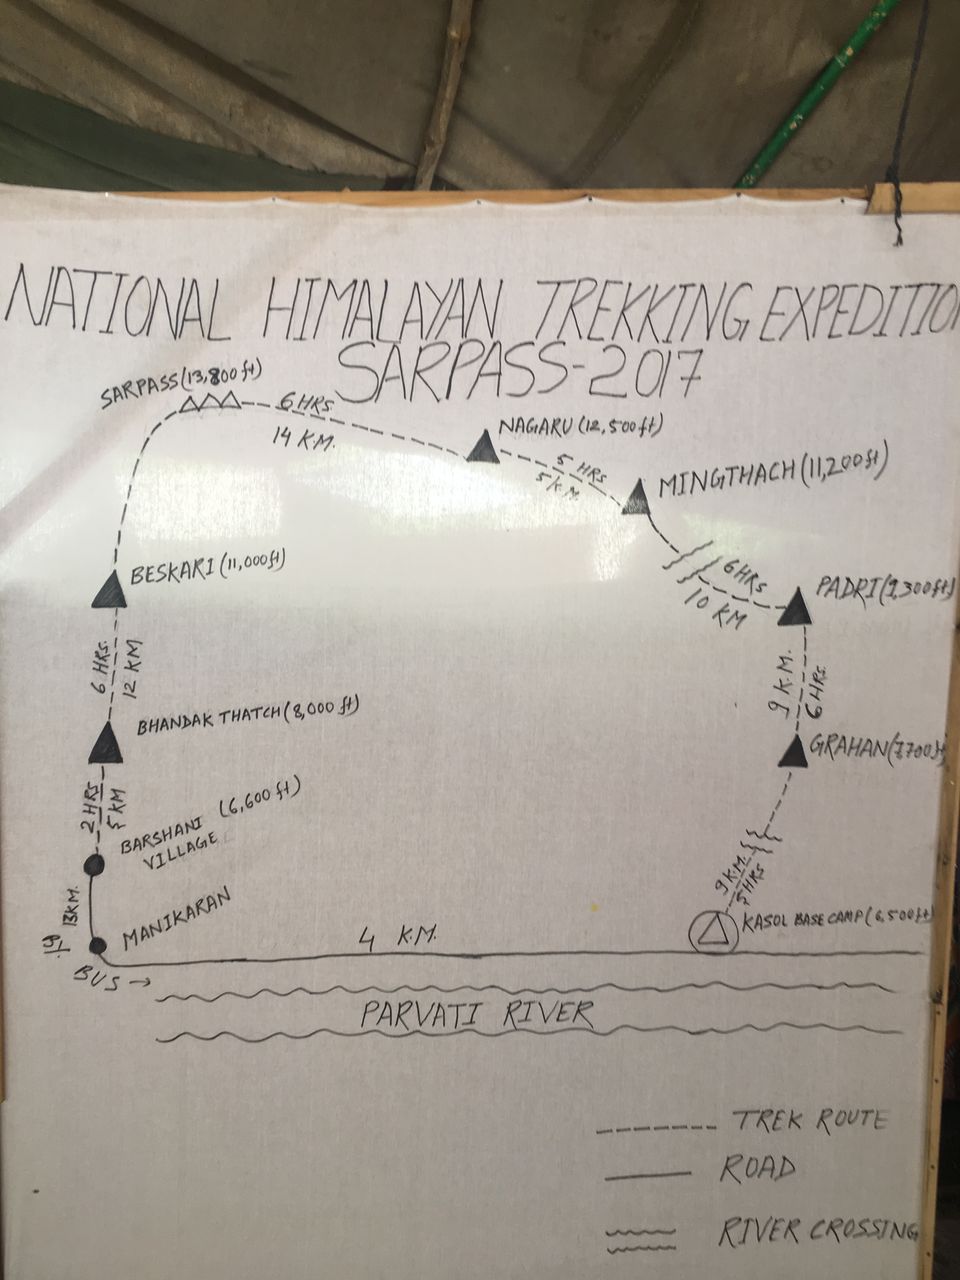 NATIONAL HIMALAYAN TREKKING EXPEDITIO
SARPASS-2017
SARPASS (13,800 ft)
6 HRS
14 K.M.
NAGARU (12,500 ft)
5 HRS
5 K.M.
MINGTHACH (11,200 ft)
6 HRS
10 KM
PADRI (9,300 ft)
9 K.M.
6 HRS.
GRAHAN (7,700 ft)
9 K.M.
5 HRS
KASOL BASE CAMP (6,500 ft)
BESKARI (11,000 ft)
6 HRS.
12 KM
BHANDAK THATCH (8,000 ft)
2 HRS
5 KM
BARSHANI (6,600 ft)
VILLAGE
13 KM.
MANIKARAN
BUS →
4 K.M.
PARVATI RIVER
TREK ROUTE
ROAD
RIVER CROSSING